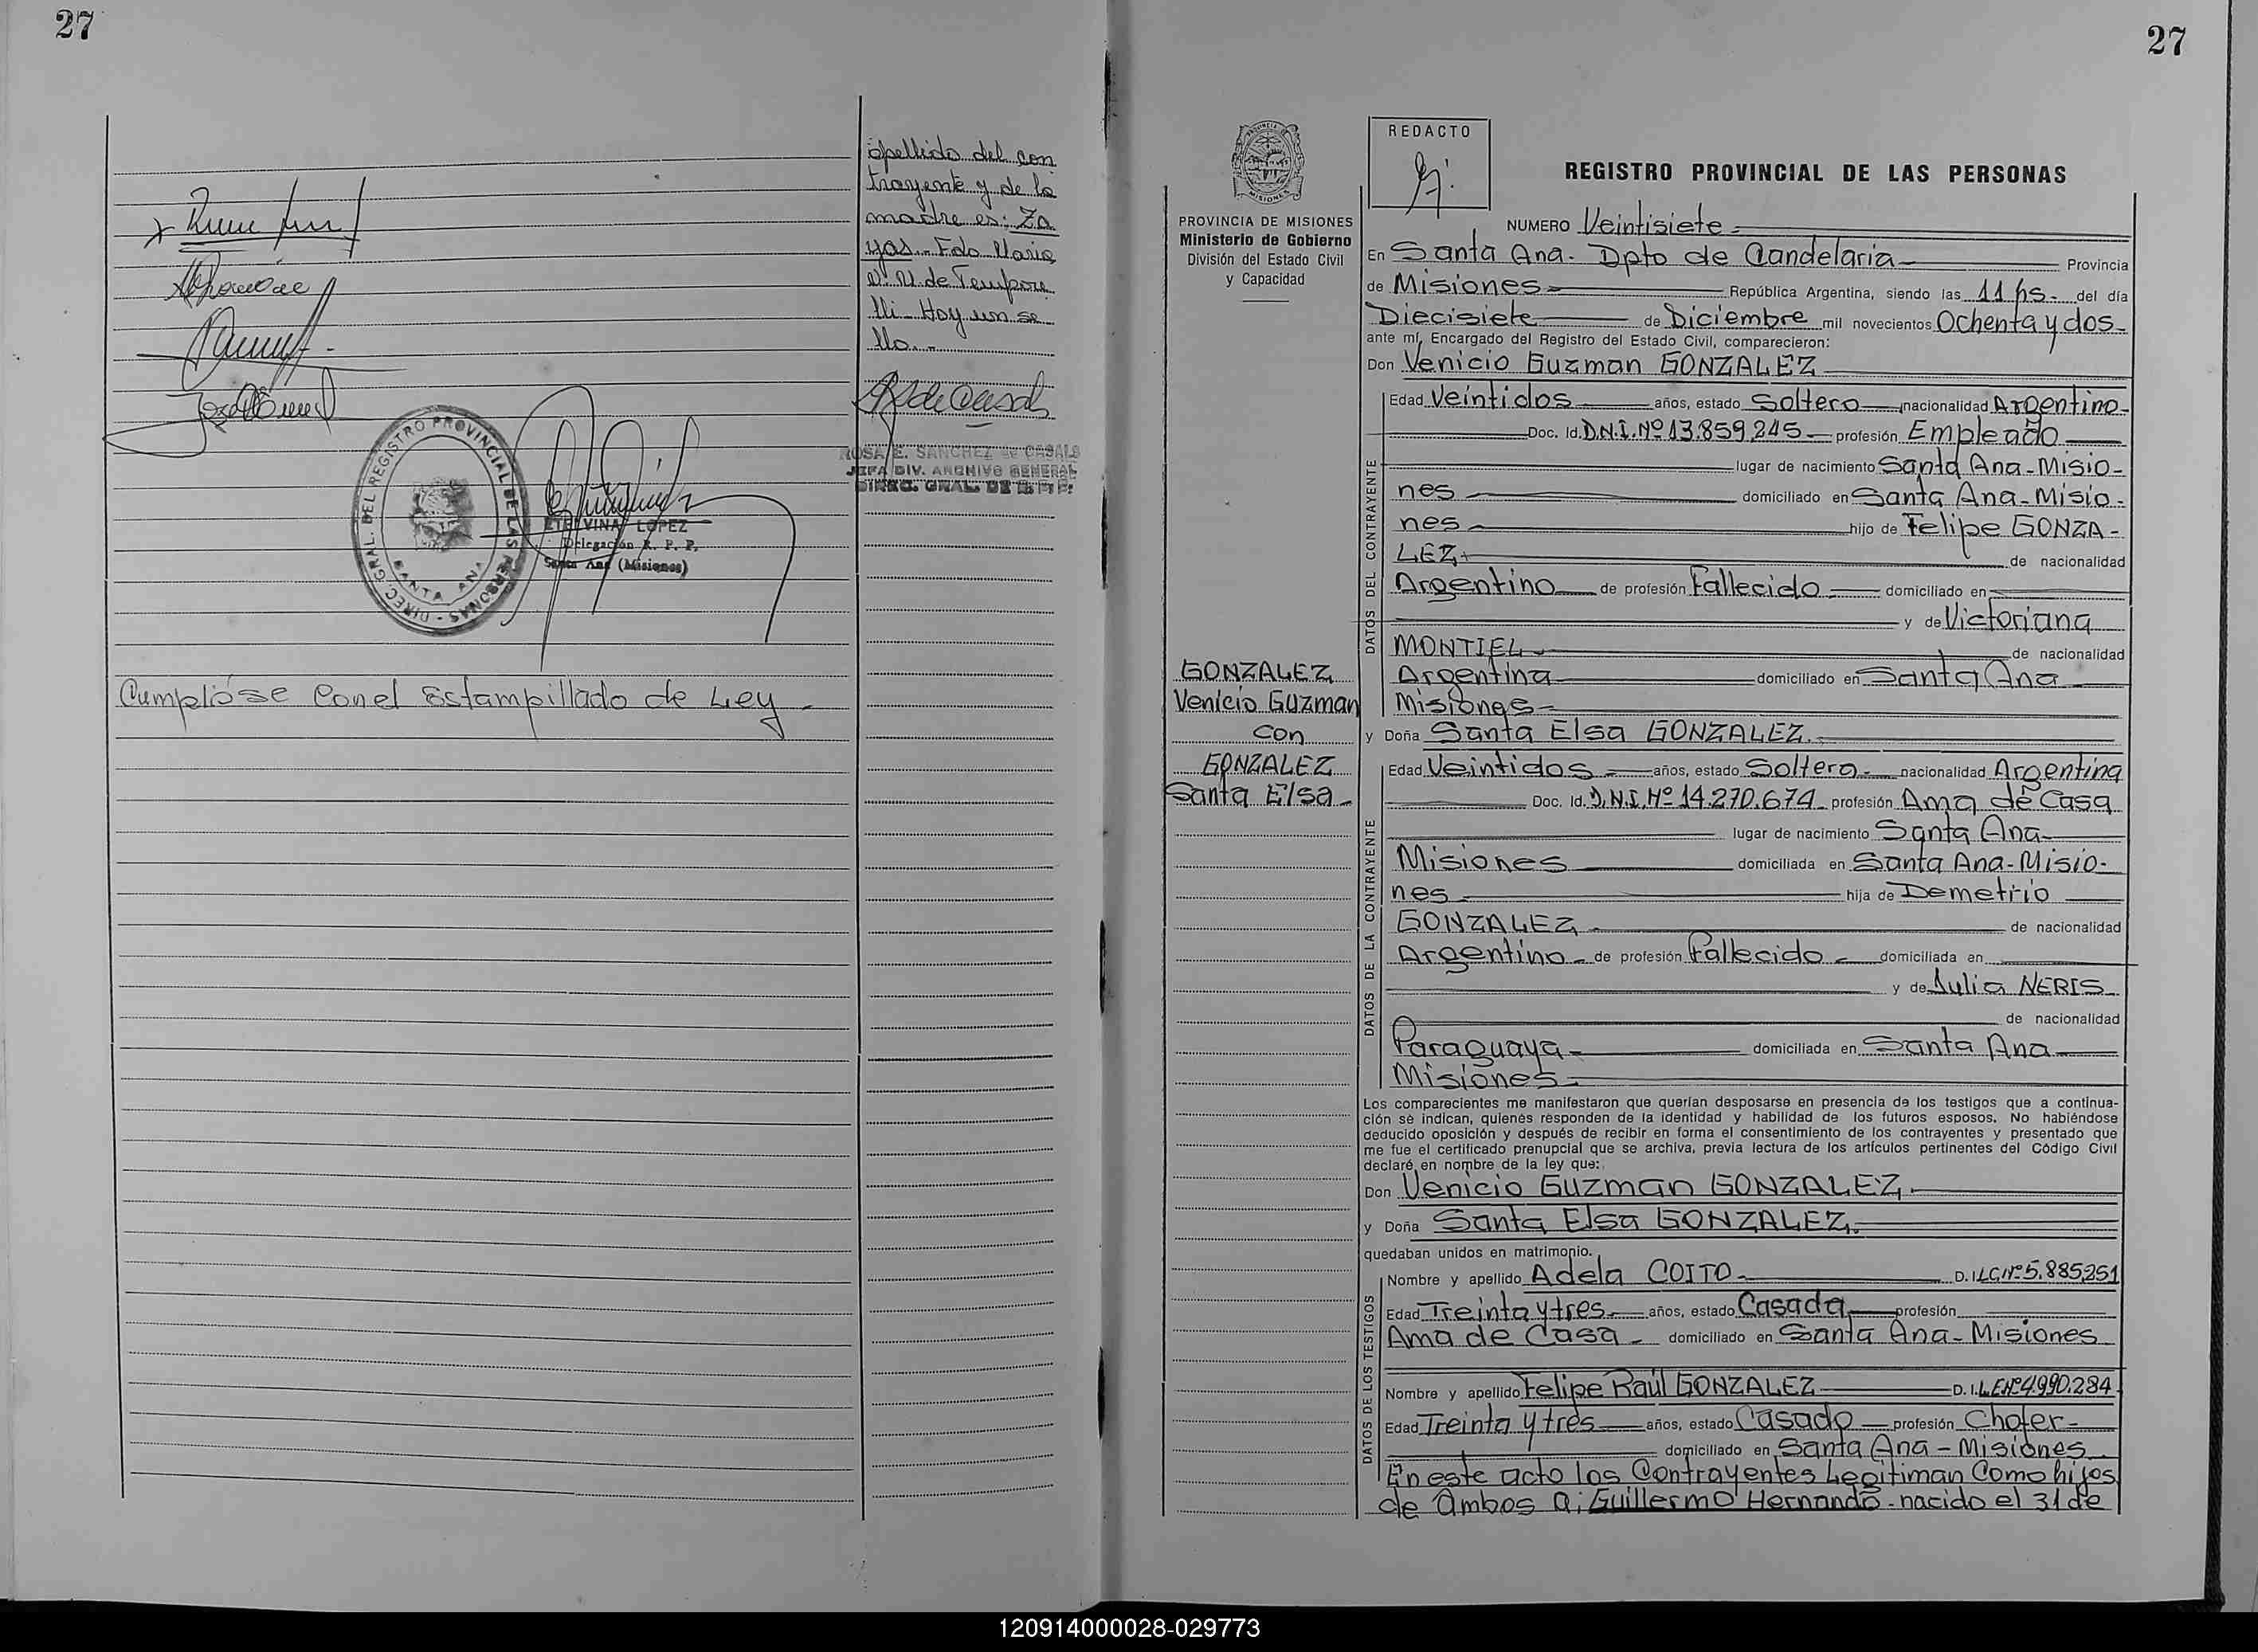 27
apellido del con
trayente y de la
madre es: Za
yas. Fdo Maria
de Tempore
lli - Hoy un se
llo.-
ROSA E. SANCHEZ de CASALS
JEFA DIV. ARCHIVO GENERAL
DIREC. GRAL. DE
DIREC. GRAL. DEL REGISTRO PROVINCIAL DE LAS PERSONAS -
SANTA ANA
ETELVINA LOPEZ
Delegación R. P. P.
Santa Ana (Misiones)
Cumplióse Con el Estampillado de Ley -
27
REDACTO
PROVINCIA DE MISIONES
Ministerio de Gobierno
División del Estado Civil
y Capacidad
GONZALEZ
Venicio Guzman
Con
GONZALEZ
Santa Elsa -
REGISTRO PROVINCIAL DE LAS PERSONAS
NUMERO Veintisiete -
En Santa Ana - Dpto de Candelaria Provincia
de Misiones - República Argentina, siendo las 11 hs - del día
Diecisiete de Diciembre mil novecientos Ochenta y dos -
ante mí, Encargado del Registro del Estado Civil, comparecieron:
Don Venicio Guzman GONZALEZ
DATOS DEL CONTRAYENTE
Edad Veintidos años, estado Soltero nacionalidad Argentino -
Doc. Id. D.N.I. Nº 13.859.245 - profesión Empleado
lugar de nacimiento Santa Ana - Misio -
nes domiciliado en Santa Ana - Misio -
nes hijo de Felipe GONZA -
LEZ de nacionalidad
Argentino de profesión Fallecido domiciliado en
y de Victoriana
MONTIEL - de nacionalidad
Argentina domiciliado en Santa Ana
Misiones -
y Doña Santa Elsa GONZALEZ.
DATOS DE LA CONTRAYENTE
Edad Veintidos - años, estado Soltera - nacionalidad Argentina
Doc. Id. D.N.I. Nº 14.270.674 - profesión Ama de Casa
lugar de nacimiento Santa Ana -
Misiones domiciliada en Santa Ana - Misio -
nes hija de Demetrio
GONZALEZ - de nacionalidad
Argentino - de profesión Fallecido - domiciliada en
y de Julia NERIS
de nacionalidad
Paraguaya - domiciliada en Santa Ana
Misiones -
Los comparecientes me manifestaron que querían desposarse en presencia de los testigos que a continua-
ción se indican, quienes responden de la identidad y habilidad de los futuros esposos. No habiéndose
deducido oposición y después de recibir en forma el consentimiento de los contrayentes y presentado que
me fue el certificado prenupcial que se archiva, previa lectura de los artículos pertinentes del Código Civil
declaré en nombre de la ley que:
Don Venicio Guzman GONZALEZ -
y Doña Santa Elsa GONZALEZ.
quedaban unidos en matrimonio.
DATOS DE LOS TESTIGOS
Nombre y apellido Adela COITO - D. I. L.C. Nº 5.885.251
Edad Treinta y tres - años, estado Casada profesión
Ama de Casa - domiciliado en Santa Ana - Misiones
Nombre y apellido Felipe Raúl GONZALEZ D. I. L.E. Nº 4.990.284
Edad Treinta y tres años, estado Casado profesión Chofer -
domiciliado en Santa Ana - Misiones
En este acto los Contrayentes Legitiman Como hijos
de Ambos a: Guillermo Hernando - nacido el 31 de
120914000028-029773